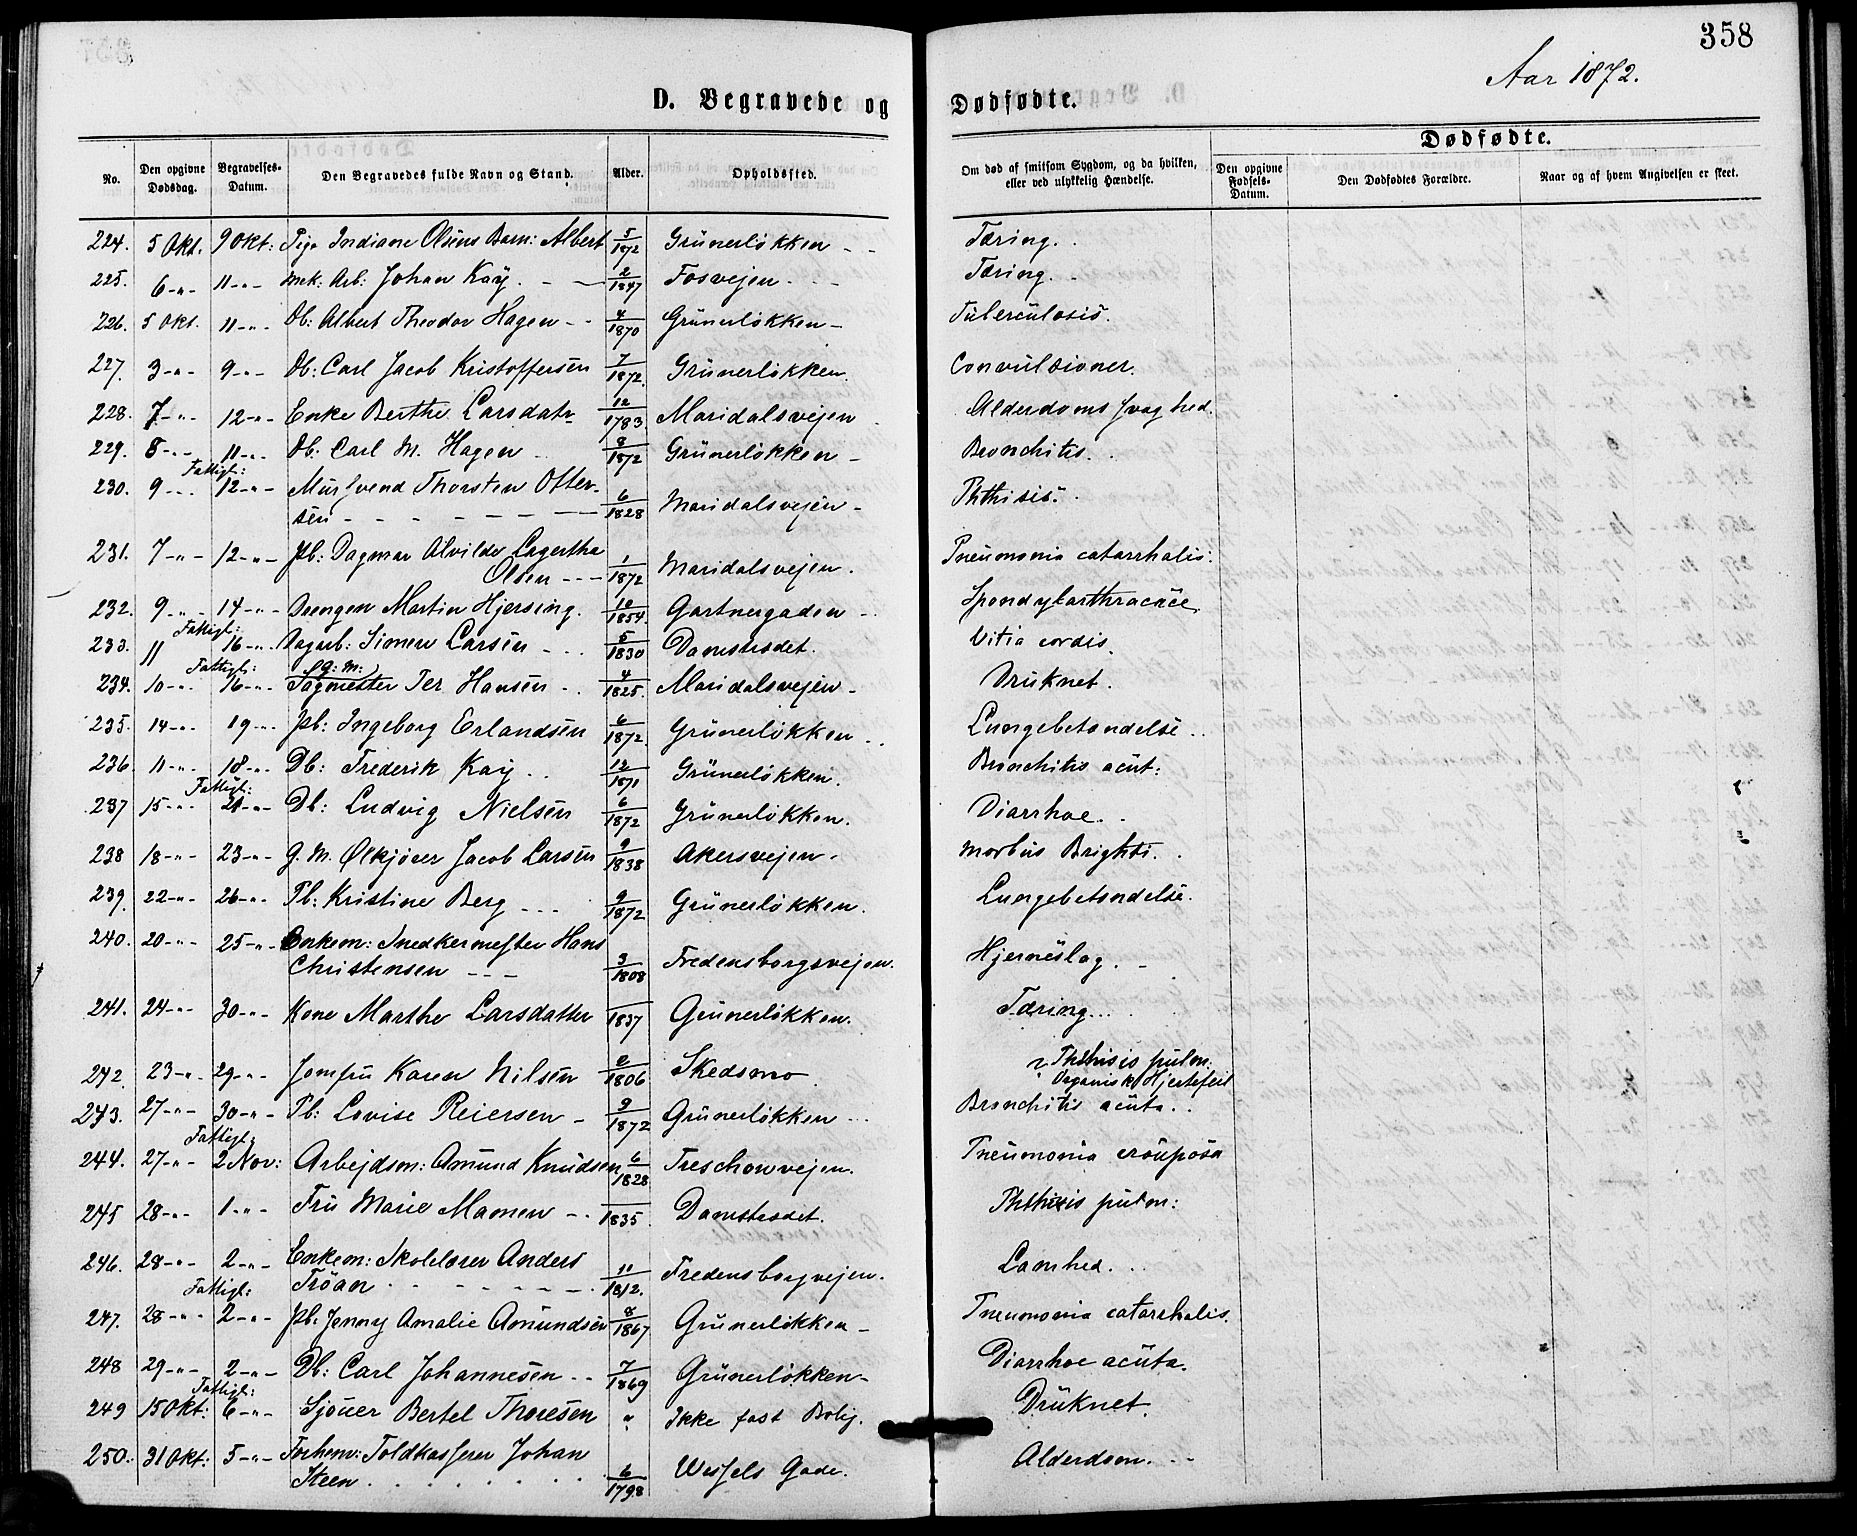 358
Aar 1872.
D. Begravede og Dødfødte.
No. | Den opgivne Dødsdag. | Begravelses-Datum. | Den Begravedes fulde Navn og Stand. | Alder. | Opholdssted. | Om død af smitsom Sygdom, og da hvilken, eller ved ulykkelig Hændelse. | Dødfødte. | Den opgivne Fødsels-Datum. | Den Dødfødtes Forældre. | Naar og af hvem Angivelsen er skeet.
224. 5 Okt. 9 Okt: Pige Indiane Olsens Barn: Albert 5/1872 Grünerløkken - - Tæring. .
225. 6 -"- 11 -"- Mek: Arb: Johan Kay. - - 2/1847 Fosvejen. - - Tæring. -
226. 5 Okt. 11 -"- Db: Albert Theodor Hagen - - 4/1870 Grünerløkken - Tuberculosis.
227. 3 -"- 9 -"- Db: Carl Jacob Kristoffersen 7/1872. Grünerløkken. Convulsioner.
228. 7 -"- 12 -"- Enke Berthe Larsdatr 12/1783 Maridalsvejen Alderdomssvaghed.
229. 8 -"- 11 -"- Db: Carl M. Hagen - 8/1872 Grünerløkken - Bronchitis. .
Fattigl:
230. 9 -"- 12 -"- Mursvend Thorsten Otter-
sen - - - - - - - 6/1828 Maridalsvejen - Phthisis. .
231. 7 -"- 12 -"- Pb: Dagmar Alvilde Lagertha
Olsen - - - 1/1872 Maridalsvejen. Pneumonia catarrhalis.
232. 9 -"- 14 -"- Drengen Martin Hjersing. 10/1854. Gartnergaden - Spondylarthracace.
Fattigl:
233. 11 16 -"- Dagarb: Simen Larsen - . . 5/1830 Damstredet. Vitia cordis.
Fattigl: g: m:
234. 10 -"- 16 -"- Sagmester Per Hansen . . 4/1825. Maridalsvejen - Druknet.
235. 14 -"- 19 -"- Pb: Ingeborg Erlandsen 6/1872. Grünerløkken . . Lungebetændelse . .
236. 11 -"- 18 -"- Db: Frederik Kay . . 12/1871 Grünerløkken. Bronchitis acut:
Fattigl:
237 15 -"- 21 -"- Db: Ludvig Nielsen 6/1872 Grünerløkken. Diarrhoe. .
238 18 -"- 23 -"- G. M. Ølkjører Jacob Larsen 9/1838 Akersvejen. Morbus Brighti. .
239. 22 -"- 26 -"- Pb: Kristine Berg - - - 9/1872 Grünerløkken. Lungebetændelse.
240. 20 -"- 25 -"- Enkem: Snedkermester Hans
Christensen - - - 3/1808 Fredensborgsvejen. Hjerneslag. -
241. 24 -"- 30 -"- Kone Marthe Larsdatter 1837 Grünerløkken. Tæring . . .
242. 23 -"- 29 -"- Jomfru Karen Nilsen 2/1806 Skedsmo Phthisis pulm.
Organisk Hjertefeil
243. 27 -"- 30 -"- Pb: Lovise Reiersen - 9/1872 Grünerløkken - - Bronchitis acuta. .
Fattigl:
244. 27 -"- 2 Nov: Arbejdsm: Amund Knudsen 6/1828 Treschowvejen. Pneumonia crouposa
245 28 -"- 1 -"- Fru Marie Mamen - . 1835. Damstredet. Phthisis pulm:
246. 28 -"- 2 -"- Enkem: Skolelærer Anders
Trøan . - - - - - - 11/1812. Fredensborgvejen. Lamhed. . .
Fattigl:
247. 28 -"- 2 -"- Pb: Jenny Amalie Amundsen 8/1867 Grünerløkken - Pneumonia catarrhalis.
248 29 -"- 2 -"- Db: Carl Johannesen - - 7/1869 Grünerløkken - Diarrhoe acuta.
Fattigl:
249 15 Okt: 6 -"- Sjouer Bertel Thoresen " Ikke fast Bolig. Druknet.
250. 31 Okt: 5 -"- Forhenv: Toldkasserer Johan
Steen . . . . . . . 6/1798 Wessels Gade. Alderdom. - -